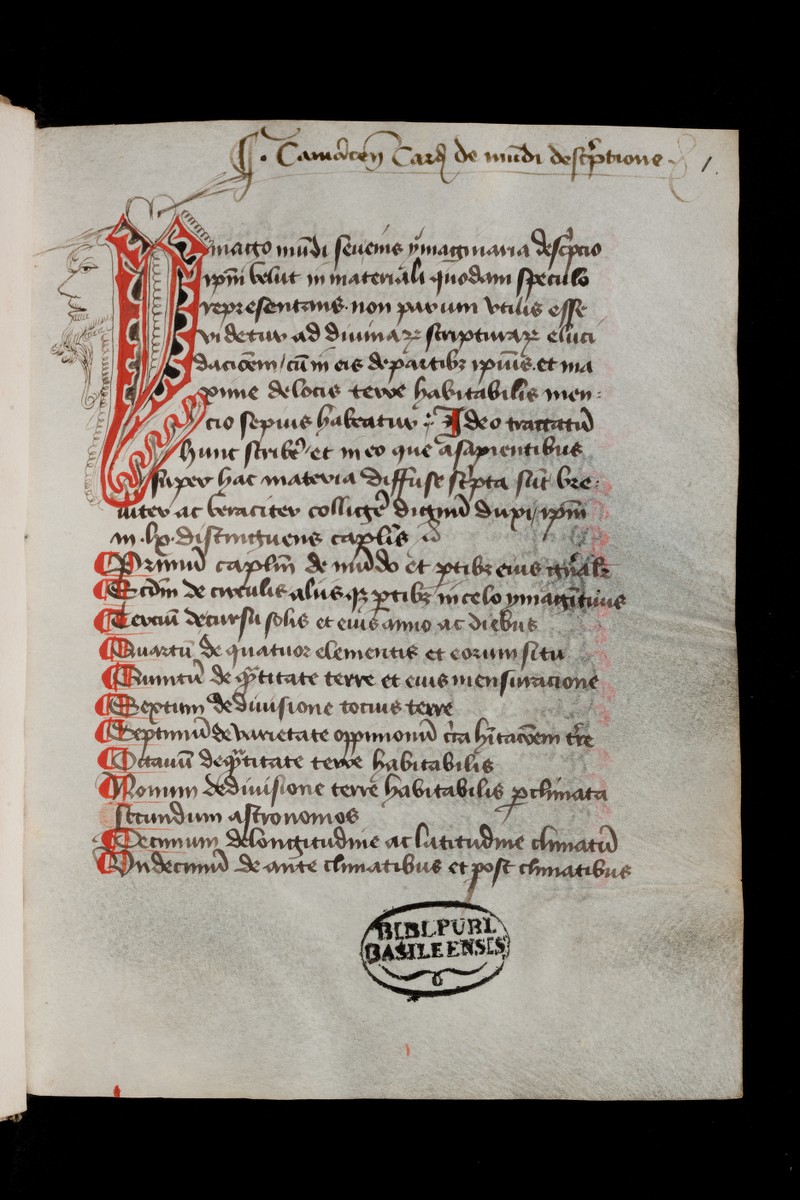 ¶. Camacen̄ Card̕ de mūdi descⁱptione. 1.
Imago mūdi seu eius ymaginaria descⁱpcio
ip̄m velut in materiali quodam speculo
representans. non parum vtilis esse
videtur ad diuinaꝝ scripturaꝝ eluci
dac̄oēm / cū in eis de partibꝫ ipīus. et ma
xime de locis terre habitabilis men-
cio sepius habeatur. Ideo tractatū
hunc scribe᷑ et in eo que a sapientibus
super hac materia diffuse scⁱpta sūt bre-
uiter ac veraciter collige᷑ dignū duxi / ip̄m
in .lx. distinguens cap̄lis
Primū cap̄lm de mūdo et ꝑtibꝫ eius gn̄alꝫ
Scdm̄ de circulis alijs qꝫ ꝑtibꝫ in celo
Terciū de cursu solis et eius anno ac diebus
Quartū de quatuor elementis et eorum situ
Quintū de qᵃtitate terre et eius mensuracione
Sextum de diuisione tocius terre
Septimū de varietate oppinionū cⁱca hītac̄oēm tr̄re
Octauū de qᵃtitate terre habitabilis
Nonum de diuisione terre habitabilis ꝑ climata
secundum astronomos
Decimum de longitudine ac latitudine climatū
Vndecimū de ante climatibus et post climatibus
BIBL. PUBL.
BASILEENSIS